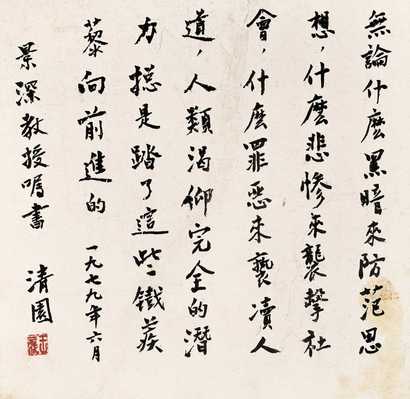 無論什麼黑暗來防范思
想，什麼悲慘來襲擊社
會，什麼罪惡來褻瀆人
道，人類渴仰完全的潛
力摠是踏了這些鐵蒺
藜向前進的 一九七九年六月
景深教授嘱書 清園